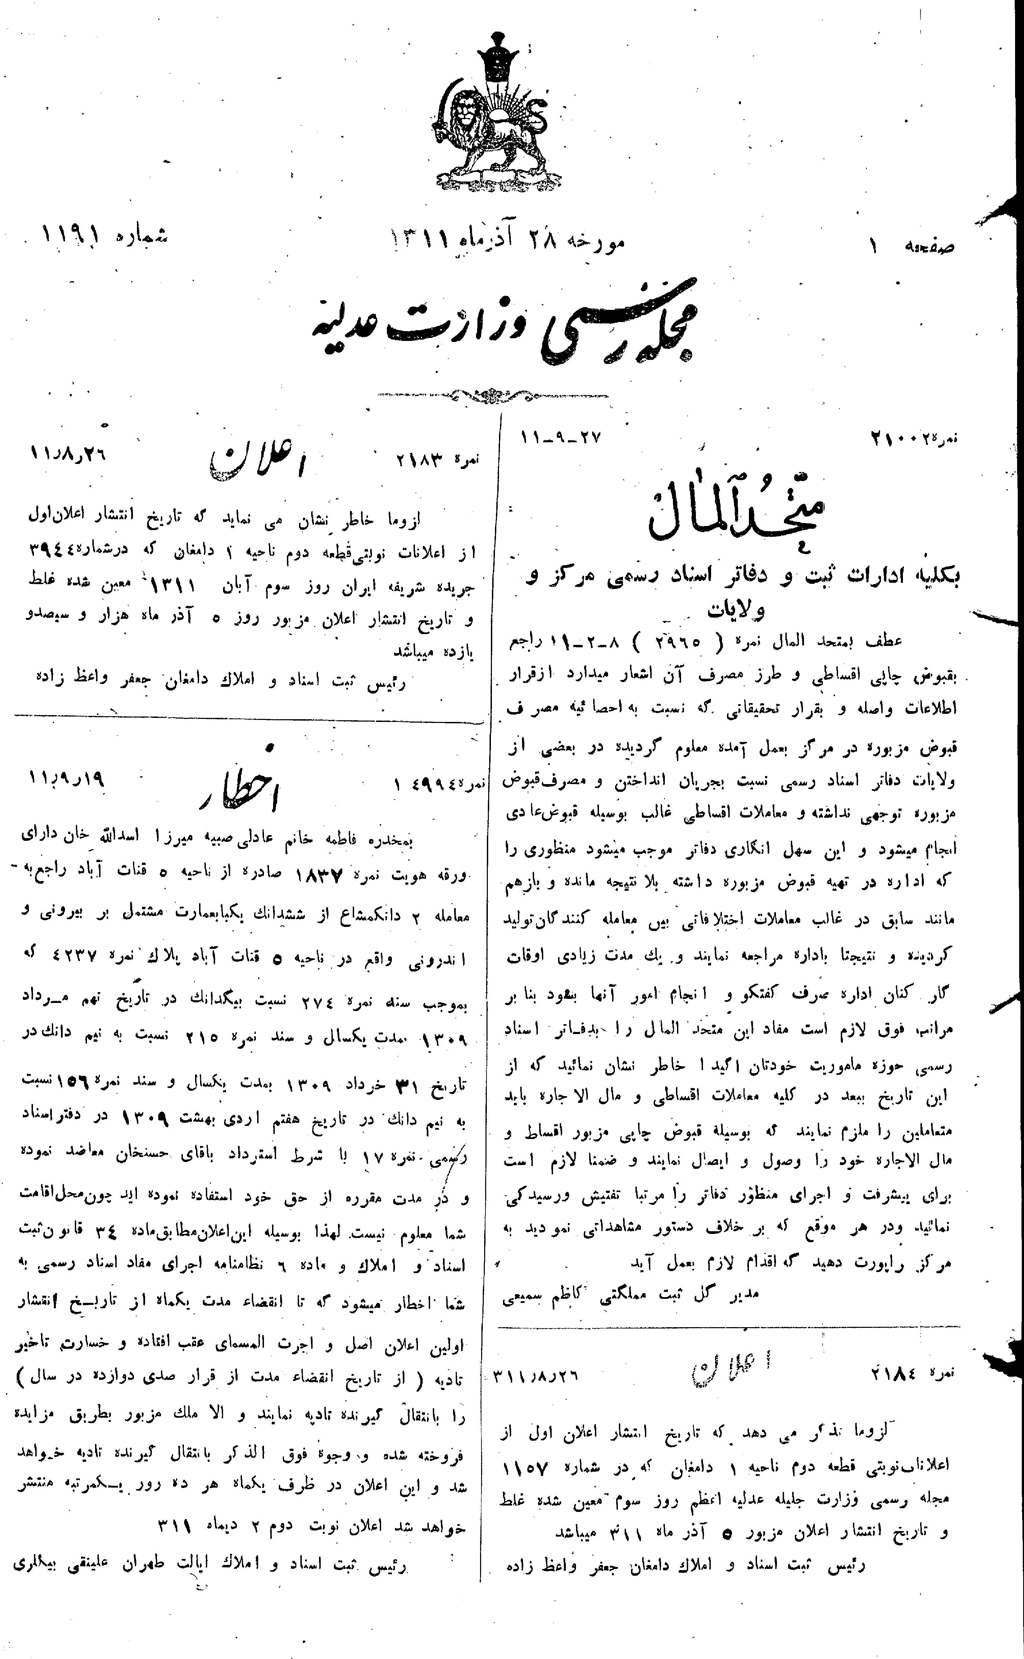 صفحه ۱
مورخه ۲۸ آذرماه ۱۳۱۱
شماره ۱۱۹۱
مجله رسمی وزارت عدلیه
نمره ۲۱۰۰۲
۲۷-۹-۱۱
متحد المال
بکلیه ادارات ثبت و دفاتر اسناد رسمی مرکز و
ولایات
عطف بمتحد المال نمره ( ۲۹۶۵ ) ۸-۲-۱۱ راجع
بقبوض چاپی اقساطی و طرز مصرف آن اشعار میدارد ازقرار
اطلاعات واصله و بقرار تحقیقاتی که نسبت به احصائیه مصرف
قبوض مزبوره در مرکز بعمل آمده معلوم گردیده در بعضی از
ولایات دفاتر اسناد رسمی نسبت بجریان انداختن و مصرف قبوض
مزبوره توجهی نداشته و معاملات اقساطی غالب بوسیله قبوض عادی
انجام میشود و این سهل انگاری دفاتر موجب میشود منظوری را
که اداره در تهیه قبوض مزبوره داشته بلا نتیجه مانده و بازهم
مانند سابق در غالب معاملات اختلافاتی بین معامله کنندگان تولید
گردیده و نتیجتا باداره مراجعه نمایند و یک مدت زیادی اوقات
کار کنان اداره صرف گفتگو و انجام امور آنها بشود بنا بر
مراتب فوق لازم است مفاد این متحد المال را بدفاتر اسناد
رسمی حوزه ماموریت خودتان اکیدا خاطر نشان نمائید که از
این تاریخ ببعد در کلیه معاملات اقساطی و مال الاجاره باید
متعاملین را ملزم نمایند که بوسیلة قبوض چاپی مزبور اقساط و
مال الاجاره خود را وصول و ایصال نمایند و ضمنا لازم است
برای پیشرفت و اجرای منظور دفاتر را مرتبا تفتیش و رسیدگی
نمائید ودر هر موقع که بر خلاف دستور مشاهداتی نمودید به
مرکز راپورت دهید که اقدام لازم بعمل آید
مدیر کل ثبت مملکتی کاظم سمیعی
نمره ۲۱۸۴
اعلان
۲۶ر۸ر۳۱۱
لزوما تذکر می دهد که تاریخ انتشار اعلان اول از
اعلانات نوبتی قطعه دوم ناحیه ۱ دامغان که در شماره ۱۱۵۷
مجله رسمی وزارت جلیله عدلیه اعظم روز سوم معین شده غلط
و تاریخ انتشار اعلان مزبور ۵ آذر ماه ۳۱۱ میباشد
رئیس ثبت اسناد و املاک دامغان جعفر واعظ زاده
نمره ۲۱۸۳
اعلان
۲۶ر۸ر۱۱
لزوما خاطر نشان می نماید که تاریخ انتشار اعلان اول
از اعلانات نوبتی قطعه دوم ناحیه ۱ دامغان که در شماره ۳۹۴۴
جریده شریفه ایران روز سوم آبان ۱۳۱۱ معین شده غلط
و تاریخ انتشار اعلان مزبور روز ۵ آذر ماه هزار و سیصدو
یازده میباشد
رئیس ثبت اسناد و املاک دامغان جعفر واعظ زاده
نمره ۱۴۹۹۴
اخطار
۱۹ر۹ر۱۱
بمخدره فاطمه خانم عادلی صبیه میرزا اسدالله خان دارای
ورقه هویت نمره ۱۸۳۷ صادره از ناحیه ۵ قنات آباد راجع به
معامله ۲ دانگمشاع از ششدانك یکبابعمارت مشتمل بر بیرونی و
اندرونی واقع در ناحیه ۵ قنات آباد پلاك نمره ۴۲۳۷ که
بموجب سند نمره ۲۷۴ نسبت بیکدانك در تاریخ نهم مرداد
۱۳۰۹ بمدت یکسال و سند نمره ۲۱۵ نسبت به نیم دانك در
تاریخ ۳۱ خرداد ۱۳۰۹ بمدت یکسال و سند نمره ۱۵۶ نسبت
به نیم دانك در تاریخ هفتم اردی بهشت ۱۳۰۹ در دفتر اسناد
رسمی نمره ۱۷ با شرط استرداد باقای حسنخان معاضد نموده
و در مدت مقرره از حق خود استفاده نموده اید چون محل اقامت
شما معلوم نیست لهذا بوسیله این اعلان مطابق ماده ۳۴ قانون ثبت
اسناد و املاك و ماده ۶ نظامنامه اجرای مفاد اسناد رسمی به
شما اخطار میشود که تا انقضاء مدت یکماه از تاریخ انتشار
اولین اعلان اصل و اجرت المسمای عقب افتاده و خسارت تاخیر
تادیه ( از تاریخ انقضاء مدت از قرار صدی دوازده در سال )
را بانتقال گیرنده تادیه نمایند و الا ملك مزبور بطریق مزایده
فروخته شده و وجوه فوق الذکر بانتقال گیرنده تادیه خواهد
شد و این اعلان در ظرف یکماه هر ده روز یکمرتبه منتشر
خواهد شد اعلان نوبت دوم ۲ دیماه ۳۱۱
رئیس ثبت اسناد و املاك ایالت طهران علینقی بیگلری